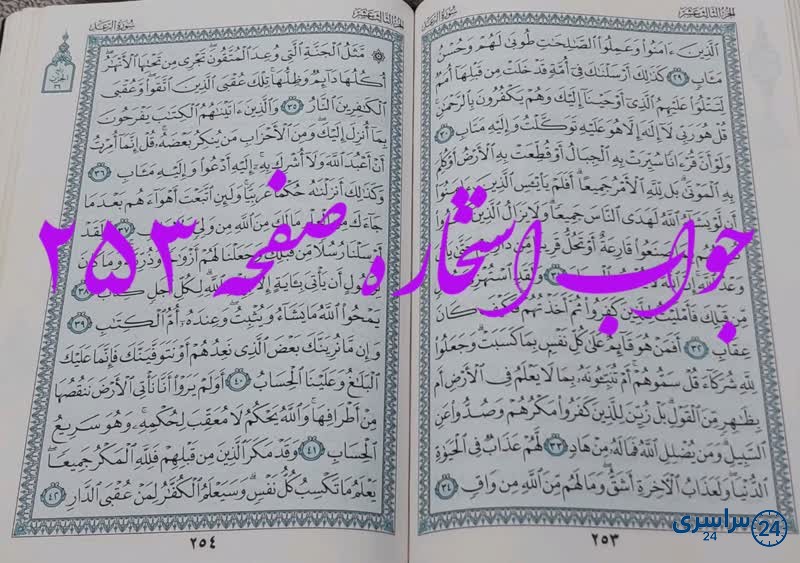 الجزء الثالث عشر
سورة الرعد
الَّذِينَ ءَامَنُوا وَعَمِلُوا الصَّٰلِحَٰتِ طُوبَىٰ لَهُمْ وَحُسْنُ
مَـَٔابٍ ٢٩ كَذَٰلِكَ أَرْسَلْنَٰكَ فِىٓ أُمَّةٍ قَدْ خَلَتْ مِن قَبْلِهَآ أُمَمٌ
لِّتَتْلُوَا۟ عَلَيْهِمُ الَّذِىٓ أَوْحَيْنَآ إِلَيْكَ وَهُمْ يَكْفُرُونَ بِالرَّحْمَٰنِ
قُلْ هُوَ رَبِّى لَآ إِلَٰهَ إِلَّا هُوَ عَلَيْهِ تَوَكَّلْتُ وَإِلَيْهِ مَتَابِ ٣٠
وَلَوْ أَنَّ قُرْءَانًا سُيِّرَتْ بِهِ الْجِبَالُ أَوْ قُطِّعَتْ بِهِ الْأَرْضُ أَوْ كُلِّمَ
بِهِ الْمَوْتَىٰ بَل لِّلَّهِ الْأَمْرُ جَمِيعًا أَفَلَمْ يَا۟يْـَٔسِ الَّذِينَ
أَن لَّوْ يَشَآءُ اللَّهُ لَهَدَى النَّاسَ جَمِيعًا وَلَا يَزَالُ الَّذِينَ
صَنَعُوا۟ قَارِعَةٌ أَوْ تَحُلُّ قَرِيبًا مِّن
وَعْدُ اللَّهِ ٣١ وَلَقَدِ اسْتُهْزِئَ
مِّن قَبْلِكَ فَأَمْلَيْتُ لِلَّذِينَ كَفَرُوا۟ ثُمَّ أَخَذْتُهُمْ فَكَيْفَ كَانَ
عِقَابِ ٣٢ أَفَمَنْ هُوَ قَآئِمٌ عَلَىٰ كُلِّ نَفْسٍۭ بِمَا كَسَبَتْ وَجَعَلُوا۟
لِلَّهِ شُرَكَآءَ قُلْ سَمُّوهُمْ أَمْ تُنَبِّـُٔونَهُۥ بِمَا لَا يَعْلَمُ فِى الْأَرْضِ أَم
بِظَٰهِرٍ مِّنَ الْقَوْلِ بَلْ زُيِّنَ لِلَّذِينَ كَفَرُوا۟ مَكْرُهُمْ وَصُدُّوا۟ عَنِ
السَّبِيلِ وَمَن يُضْلِلِ اللَّهُ فَمَا لَهُۥ مِنْ هَادٍ ٣٣ لَّهُمْ عَذَابٌ فِى الْحَيَوٰةِ
الدُّنْيَا وَلَعَذَابُ الْأَخِرَةِ أَشَقُّ وَمَا لَهُم مِّنَ اللَّهِ مِن وَاقٍ ٣٤
٢٥٣
الجزء الثالث عشر
سورة الرعد
مَّثَلُ الْجَنَّةِ الَّتِى وُعِدَ الْمُتَّقُونَ تَجْرِى مِن تَحْتِهَا الْأَنْهَٰرُ
أُكُلُهَا دَآئِمٌ وَظِلُّهَا تِلْكَ عُقْبَى الَّذِينَ اتَّقَوا۟ وَّعُقْبَى
الْكَٰفِرِينَ النَّارُ ٣٥ وَالَّذِينَ ءَاتَيْنَٰهُمُ الْكِتَٰبَ يَفْرَحُونَ
بِمَآ أُنزِلَ إِلَيْكَ وَمِنَ الْأَحْزَابِ مَن يُنكِرُ بَعْضَهُۥ قُلْ إِنَّمَآ أُمِرْتُ
أَنْ أَعْبُدَ اللَّهَ وَلَآ أُشْرِكَ بِهِۦٓ إِلَيْهِ أَدْعُوا۟ وَإِلَيْهِ مَـَٔابِ ٣٦
وَكَذَٰلِكَ أَنزَلْنَٰهُ حُكْمًا عَرَبِيًّا وَلَئِنِ اتَّبَعْتَ أَهْوَآءَهُم بَعْدَ مَا
جَآءَكَ مِنَ الْعِلْمِ مَا لَكَ مِنَ اللَّهِ مِن وَلِىٍّ ٣٧ وَلَقَدْ
أَرْسَلْنَا رُسُلًا مِّن قَبْلِكَ وَجَعَلْنَا لَهُمْ أَزْوَٰجًا وَذُرِّيَّةً وَمَا كَانَ
لِرَسُولٍ أَن يَأْتِىَ بِـَٔايَةٍ إِلَّا اللَّهِ لِكُلِّ أَجَلٍ كِتَابٌ ٣٨
يَمْحُوا۟ اللَّهُ مَا يَشَآءُ وَيُثْبِتُ وَعِندَهُۥٓ أُمُّ الْكِتَٰبِ ٣٩
وَإِن مَّا نُرِيَنَّكَ بَعْضَ الَّذِى نَعِدُهُمْ أَوْ نَتَوَفَّيَنَّكَ فَإِنَّمَا عَلَيْكَ
الْبَلَٰغُ وَعَلَيْنَا الْحِسَابُ ٤٠ أَوَلَمْ يَرَوْا۟ أَنَّا نَأْتِى الْأَرْضَ نَنقُصُهَا
مِنْ أَطْرَافِهَا وَاللَّهُ يَحْكُمُ لَا مُعَقِّبَ لِحُكْمِهِۦ وَهُوَ سَرِيعُ
الْحِسَابِ ٤١ وَقَدْ مَكَرَ الَّذِينَ مِن قَبْلِهِمْ فَلِلَّهِ الْمَكْرُ جَمِيعًا
يَعْلَمُ مَا تَكْسِبُ كُلُّ نَفْسٍ وَسَيَعْلَمُ الْكُفَّٰرُ لِمَنْ عُقْبَى الدَّارِ ٤٢
٢٥٤
جواب استخاره صفحه ۲۵۳
سراسری 24
24